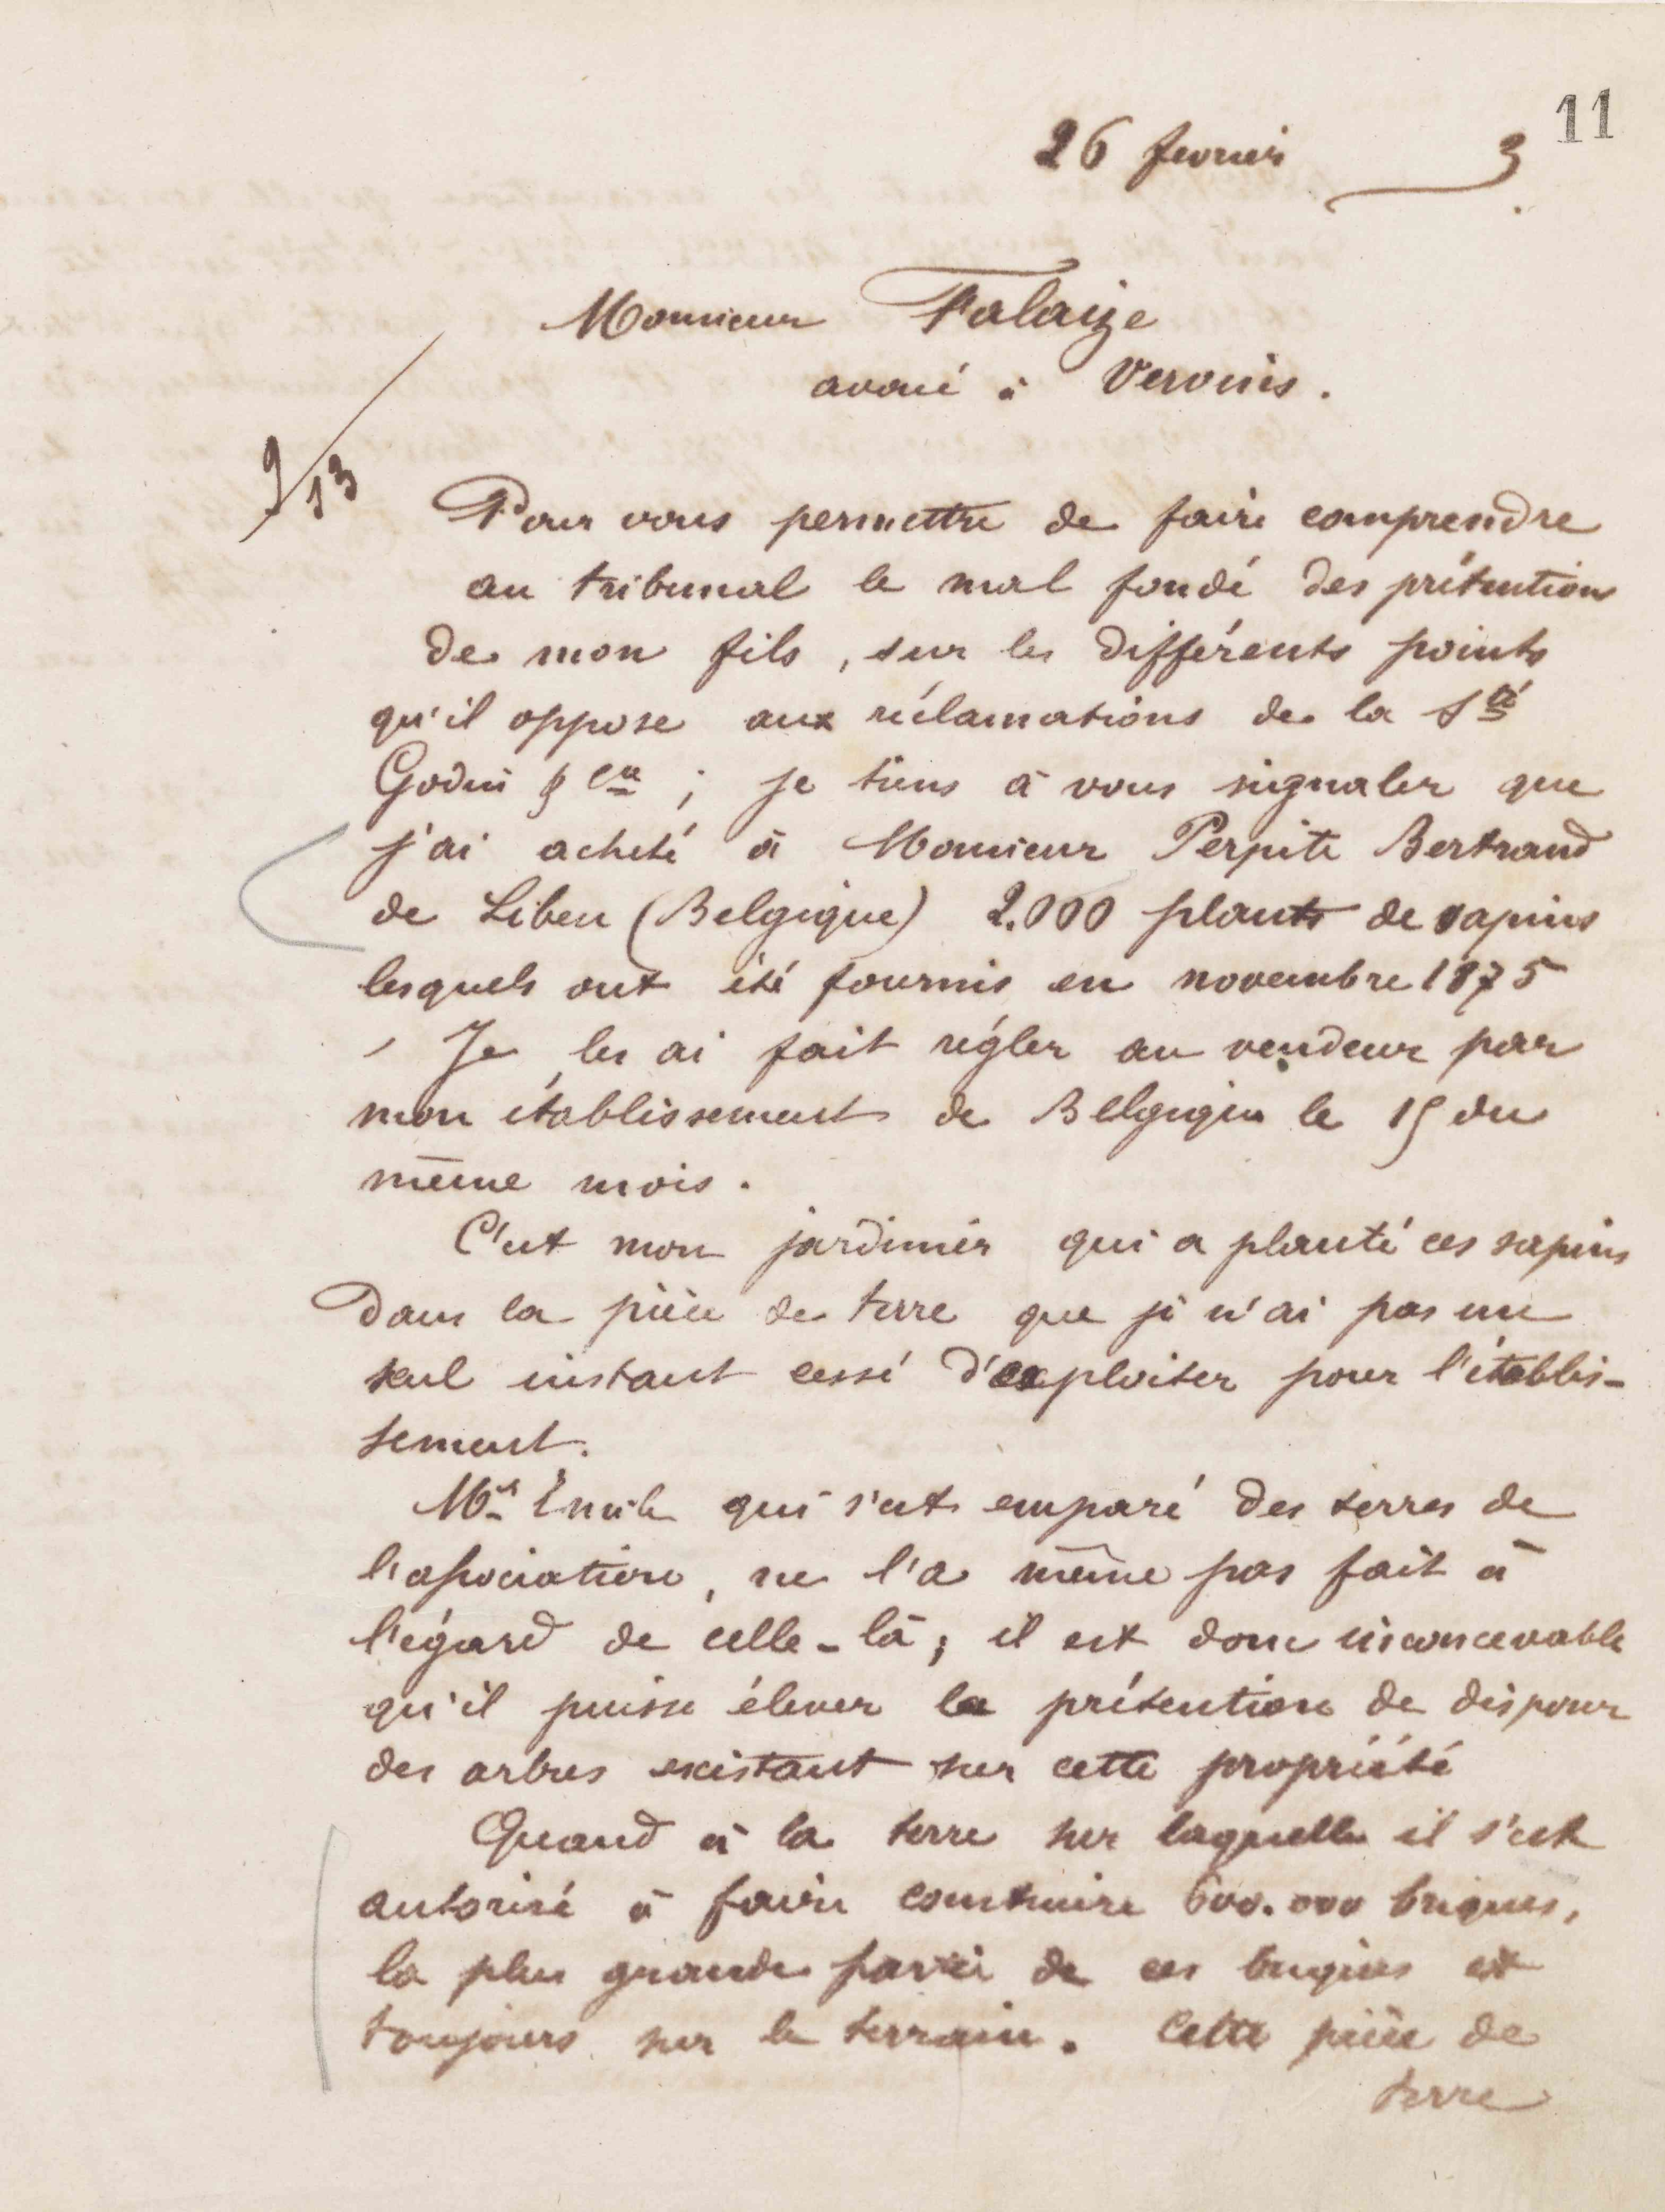 11
26 fevrier 3
Monsieur Falaize
avoué à Vervins.
9/13
Pour vous permettre de faire comprendre
au tribunal le mal fondé des prétentions
de mon fils, sur les différents points
qu'il oppose aux réclamations de la Sté
Godin & Cie ; je tiens à vous signaler que
j'ai acheté à Monsieur Perpète Bertrand
de Liben (Belgique) 2.000 plants de sapins
lesquels ont été fournis en novembre 1875
Je les ai fait régler au vendeur par
mon établissement de Belgique le 15 du
même mois.
C'est mon jardinier qui a planté ces sapins
dans la pièce de terre que je n'ai pas un
seul instant cessé d'exploiter pour l'établis-
sement.
Mr Emile qui s'est emparé des terres de
l'association, ne l'a même pas fait à
l'égard de celle-là ; il est donc inconcevable
qu'il puisse élever la prétention de disposer
des arbres existant sur cette propriété
Quand à la terre sur laquelle il s'est
autorisé à faire construire 600.000 briques,
la plus grande partie de ces briques est
toujours sur le terrain. Cette pièce de
terre